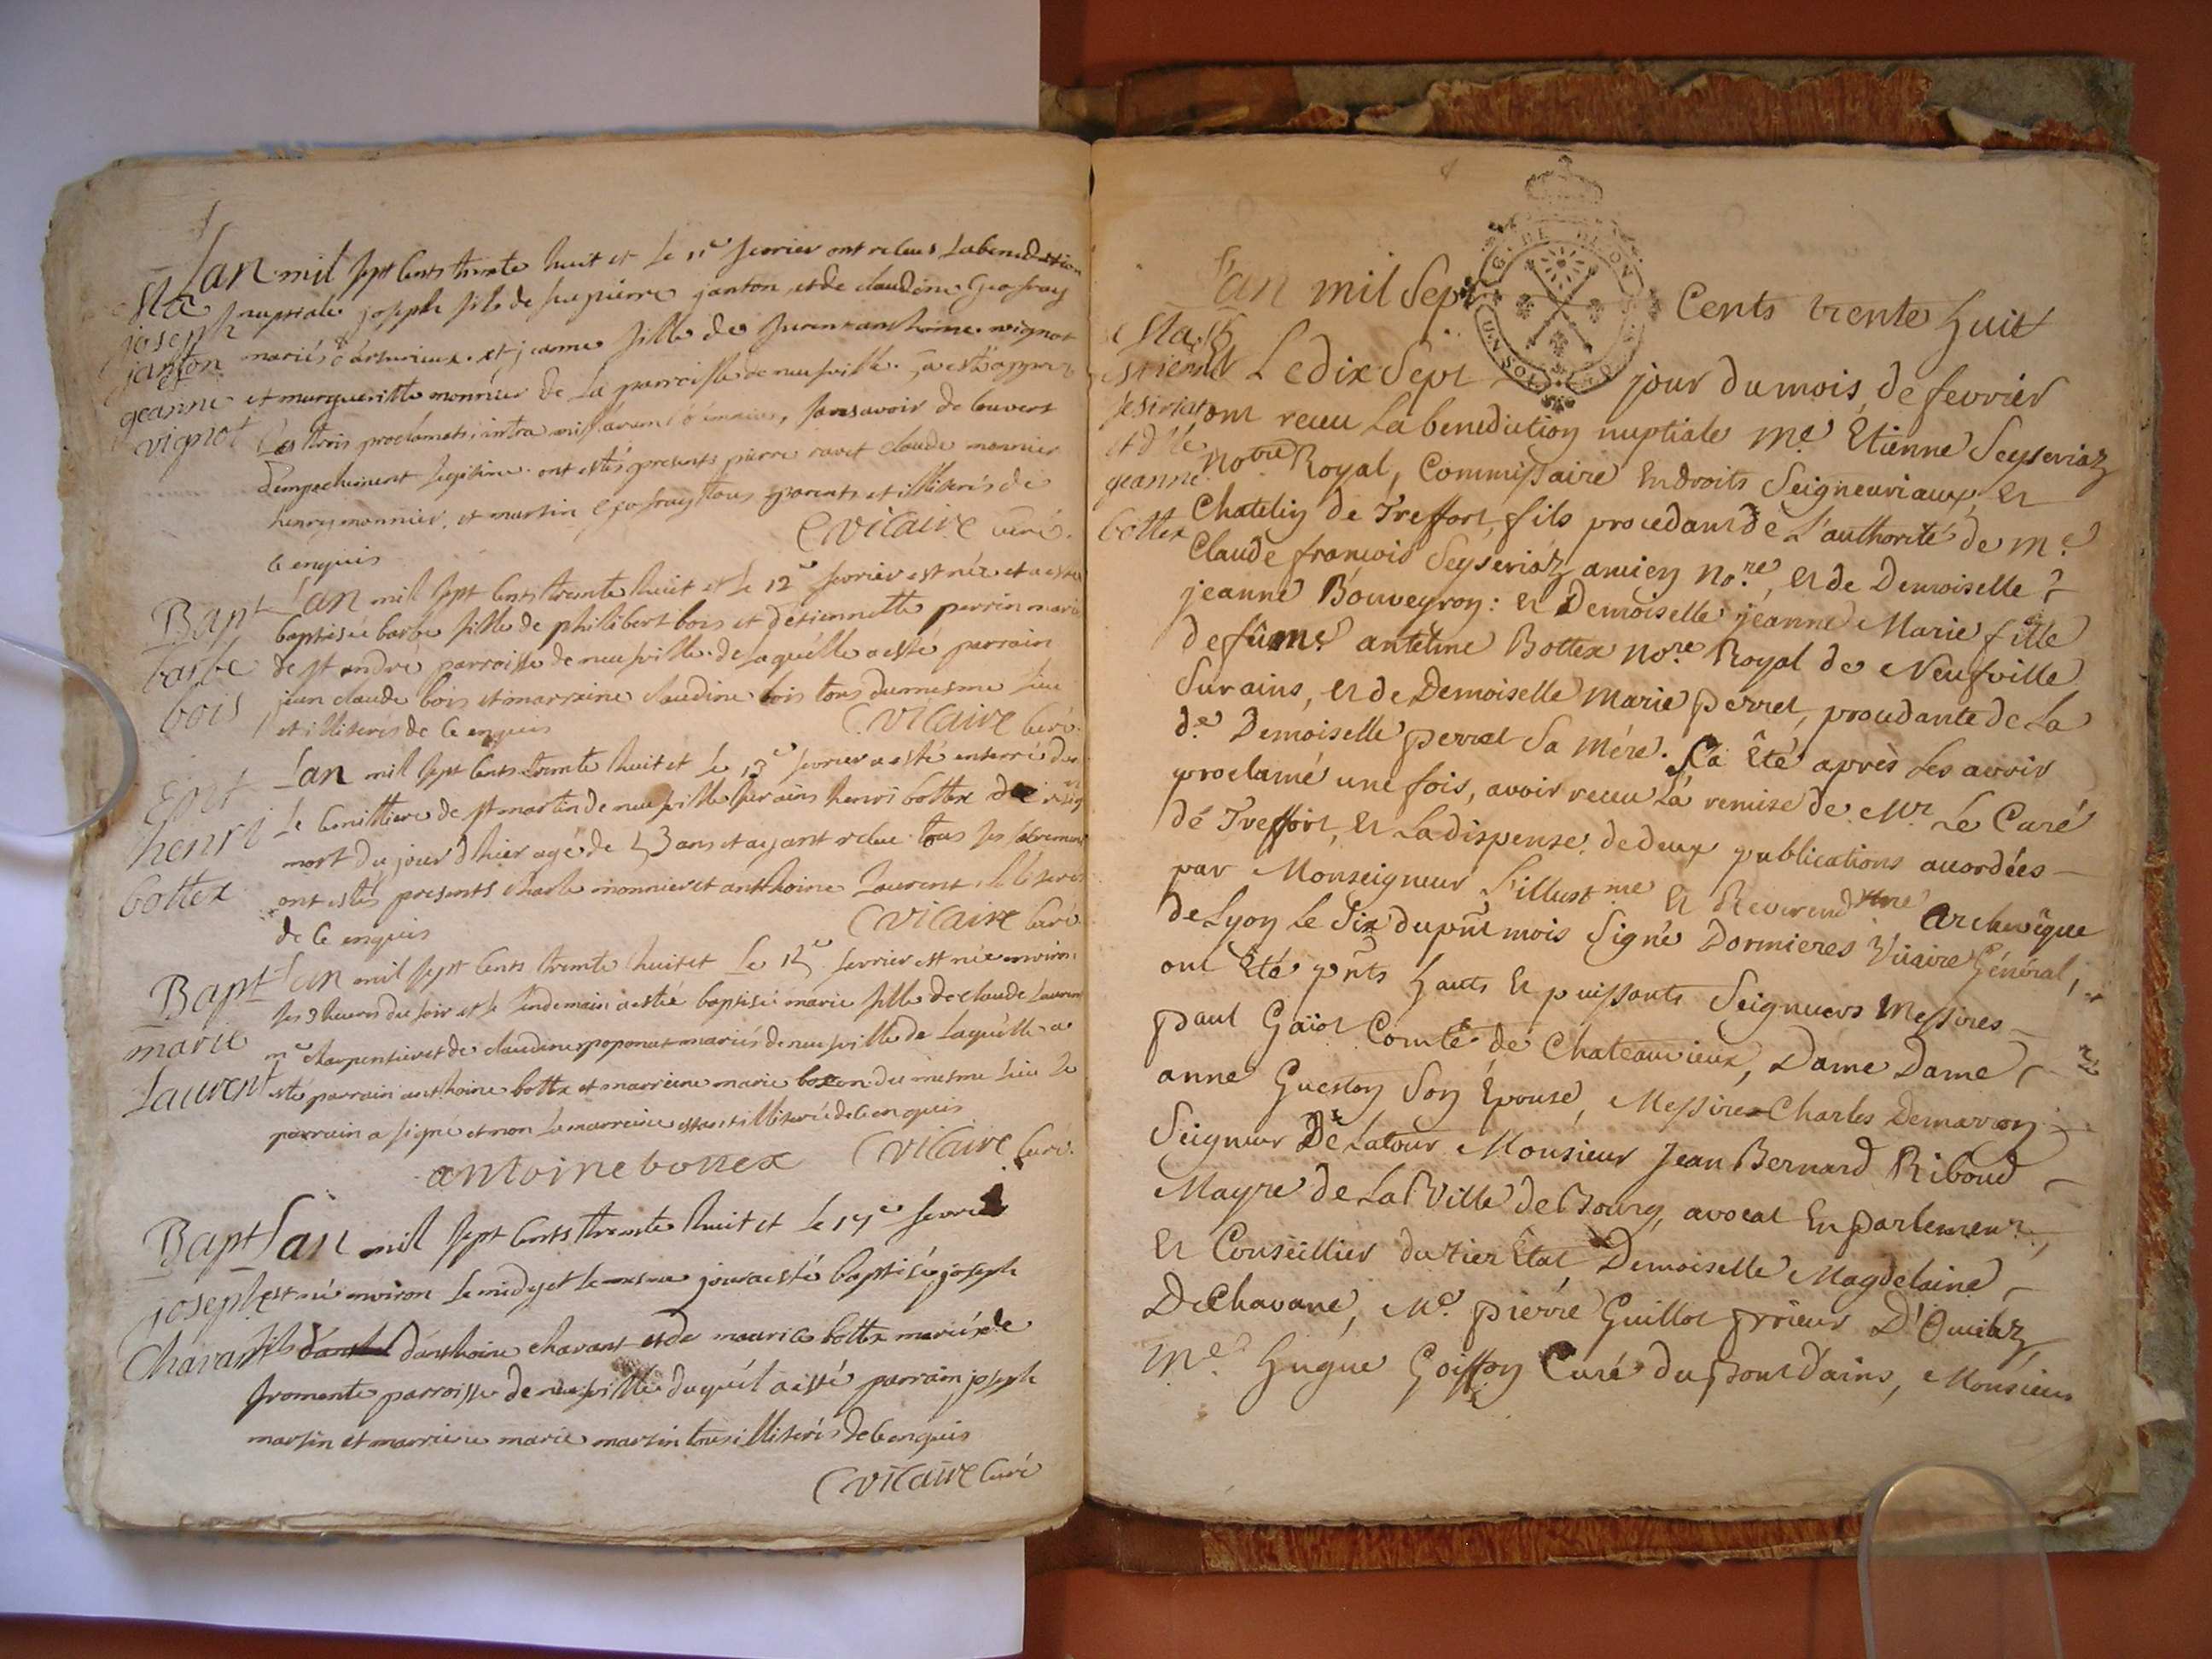 Lan mil sept cents trente huit et le 11e fevrier ont receus la benediction
nuptiale joseph fils de feu pierre janton et de claudine Geofray
mariés et jeanne fille de vignot
et margueritte monnier de la parroisse de neufville
les trois proclamats sans avoir decouvert
d'empechement legitime ont estés presents pierre ravet claude monnier
henry monnier et martin geofray tous parents et illiterés de
ce enquis
Vicaire curé
Sta
joseph
janton
et
geanne
vignot
Lan mil sept cents trente huit et le 12e fevrier est née et a esté
baptisée barbe fille de philibert bois et d'étiennette perrin mariés
de st andré parroisse de neufville de laquelle a esté parrain
jean claude bois et marraine claudine bois tous du mesme lieu
et illiterés de ce enquis
Vicaire Curé
Bapt
barbe
bois
Lan mil sept cents trente huit et le 13e fevrier a esté enterré dans
le cemittiere de st martin de neufville sur ains henri bottex
mort du jour d'hier agé de 53 ans et ayant receu tous ses sacrements
ont estés presents charle monnier et anthoine Laurent illiterés
de ce enquis
Vicaire Curé
henri
bottex
Lan mil sept cents trente huit et le 15e fevrier est née environ
les 9 heures du soir et le lendemain a esté baptisée marie fille de claude Laurent
me charpentier et de claudine poponat mariés de neufville de laquelle a
esté parrain anthoine bottex et marraine marie du mesme lieu le
parrain a signé et non la marraine estant illiterée de ce enquis
antoine bottex Vicaire Curé
Bapt
marie
Laurent
Lan mil sept cents trente huit et le 17e fevrier
est né environ le midy et le mesme jour a esté baptisé joseph
fils d'anthoine chavant et de bottex mariés de
fromente parroisse de neufville duquel a esté parrain joseph
martin et marraine marie martin tous illiterés de ce enquis
Vicaire Curé
Bapt
joseph
Chavant
L'an mil Sept Cents trente huit
Le dix Sept jour du mois de fevrier
ont receu La benediction nuptiale Me Etienne Seyseriaz
Notre Royal, Commissaire En droits Seigneuriaux, Et
Chatelin de Treffort, fils procedant de L'authorité de Me
Claude francois Seyseriaz ancien Nore, Et de Demoiselle
jeanne Bouveyron: Et Demoiselle jeanne Marie fille
de fû me antelme Bottex Nore Royal de Neufville
Sur ains, Et de Demoiselle Marie perret, procedante de La
de Demoiselle perret Sa Mére. Ça Été après Les avoir
proclamé une fois, avoir receu La remise de Mr Le Curé
de Treffort, Et La dispense de deux publications accordées
par Monseigneur L'illustme Et Reverendme Archevêque
de Lyon Le Six du pnt mois Signé Dormieres Vicaire Général,
ont Été pnts hauts Et puissants Seigneurs Messires
paul Gaiot Comte de Chateauvieux, Dame Dame
anne Gueston Son Épouse, Messire Charles Demarron
Seigneur De Latour Monsieur Jean Bernard Riboud
Mayre de La Ville de Bourg, avocat En parlement,
Et Conseillier du tier État Demoiselle Magdelaine
De Chavane, Me pierre Guillot prieur D'
Me hugue Goiffon Curé du pont d'ains, Monsieur
geanne
bottex
UN SOL